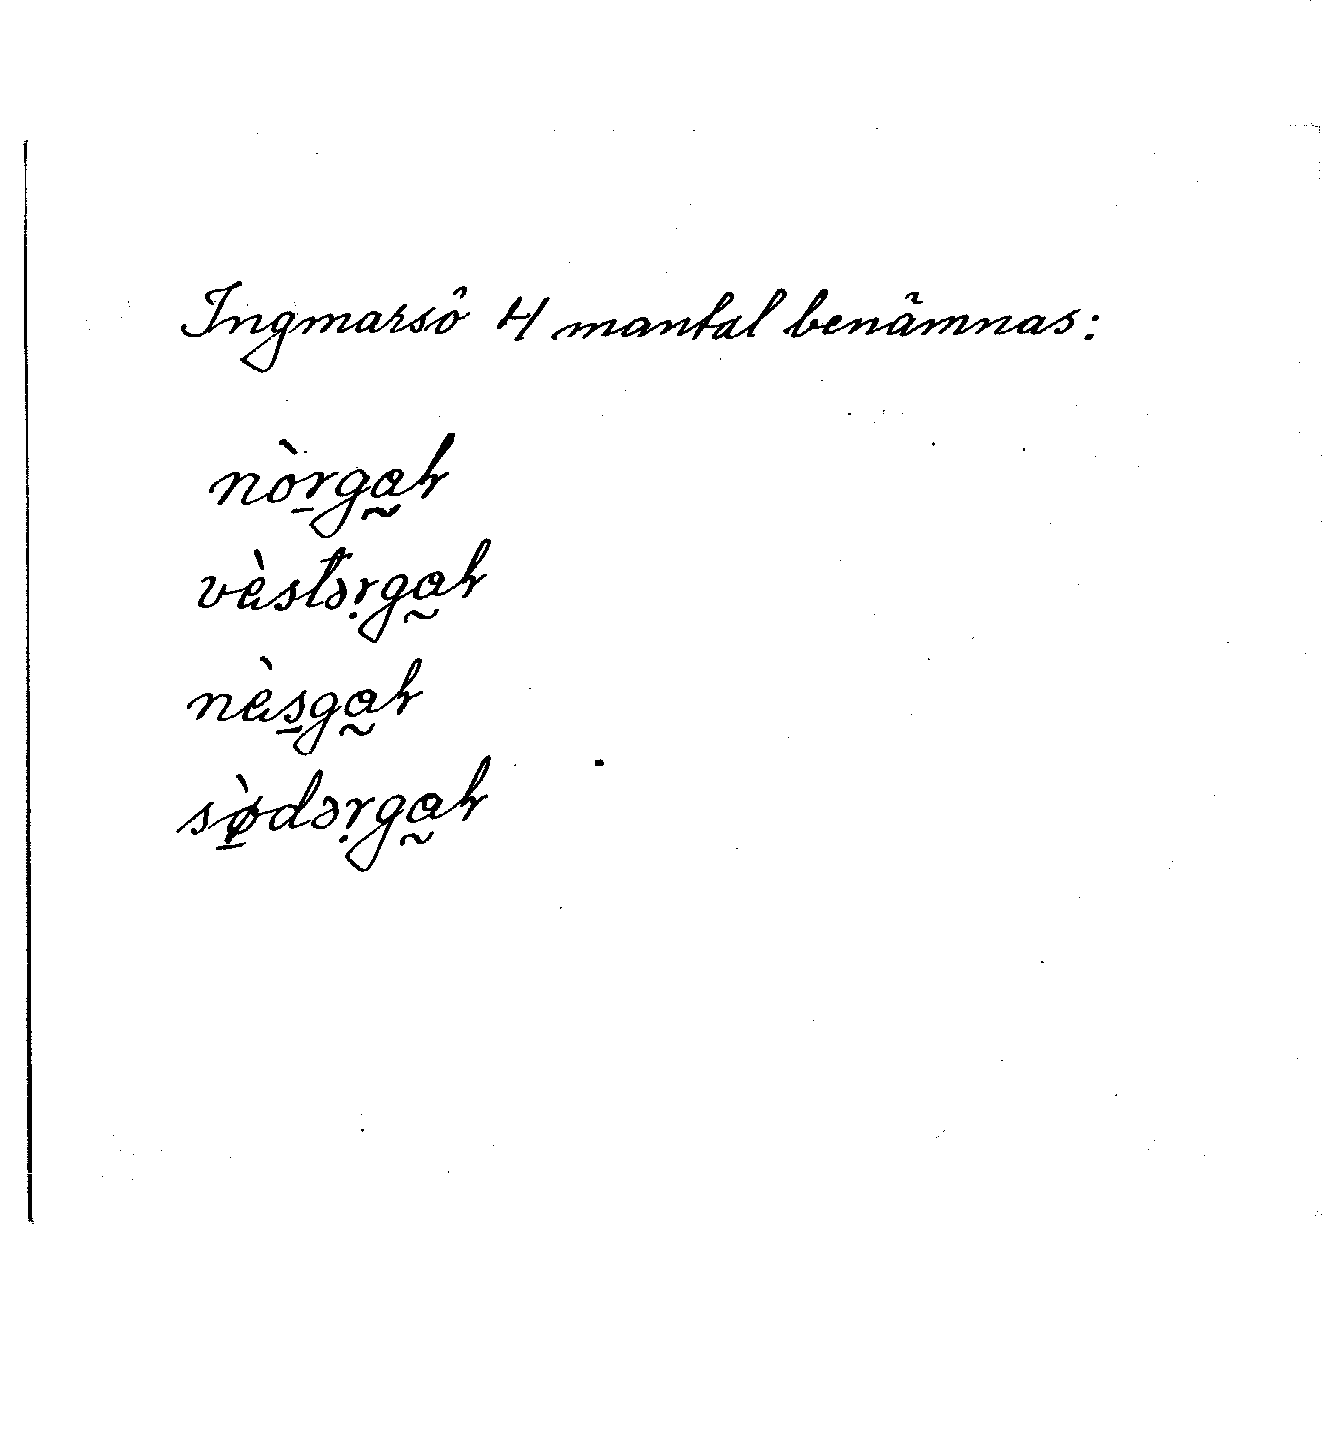 Ingmarsö 4 mantal benämnas:
nòr̲ga̰ɫ
vàstəṛga̰ɫ
nàs̲ga̰ɫ
sø̲̀dəṛga̰ɫ